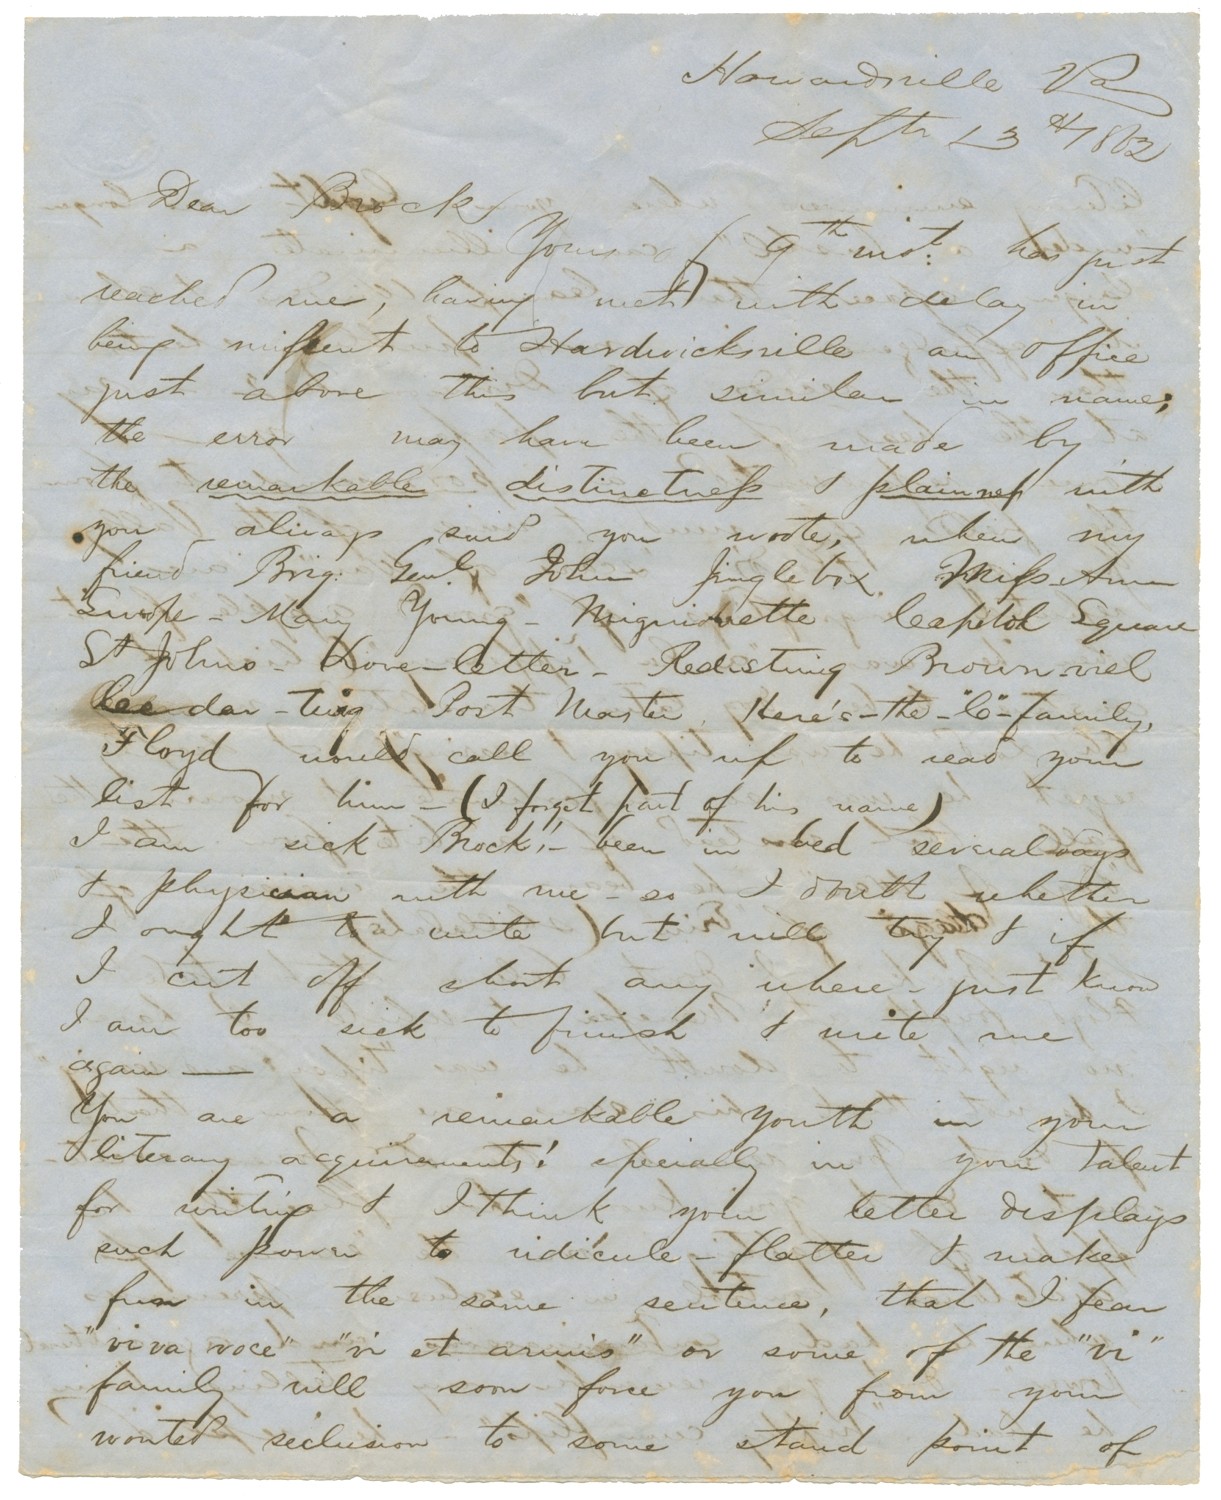 Howardsville Va
Septr 13th 1862
Dear Brock
Yours of 9th inst. has just
reached me, having met with delay in
being missent to Hardwicksville an office
just above this but similar in name;
the error may have been made by
the remarkable distinctness & plainness with
you always said you wrote, when my
friend Brig. Genl. John Jinglebox Miss Ann
Europe - Mary Young - Mignionette Capitol Square
St Johns - Love-letter - Redisting Brown-viel
dar-ting Post Master, Here's-the-"lo"-family,
Floyd would call you up to read your
list for him - (I forget part of his name)
I am sick Brock! - been in bed several days
& physician with me - so I doubt whether
I ought to write but will try & if
I cut off short any where - just know
I am too sick to finish & write me
again —
You are a remarkable youth in your
literary acquirements! specially in your talent
for writing & I think your letter displays
such power to ridicule - flatter & make
fun in the same sentence, that I fear
"viva voce" "vi et armis" or some of the "vi"
family will soon force you from your
wonted seclusion to some stand point of